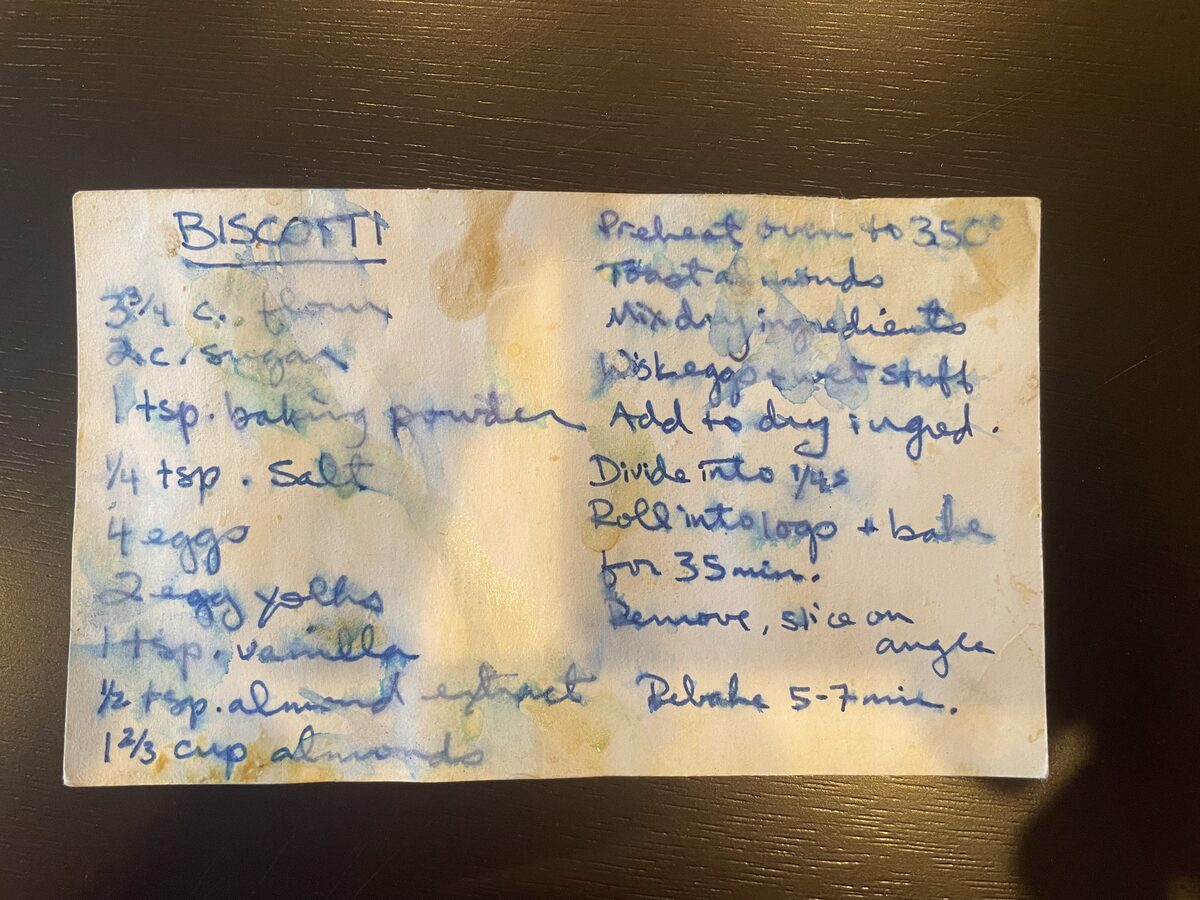 BISCOTTI
3 3/4 c. flour
2 c. sugar
1 tsp. baking powder
1/4 tsp. Salt
4 eggs
2 egg yolks
1 tsp. vanilla
1/2 tsp. almond extract
1 2/3 cup almonds
Preheat oven to 350°
Toast almonds
Mix dry ingredients
Wisk eggs + wet stuff
Add to dry ingred.
Divide into 1/4s
Roll into logs + bake
for 35 min.
Remove, slice on
angle
Rebake 5-7 min.